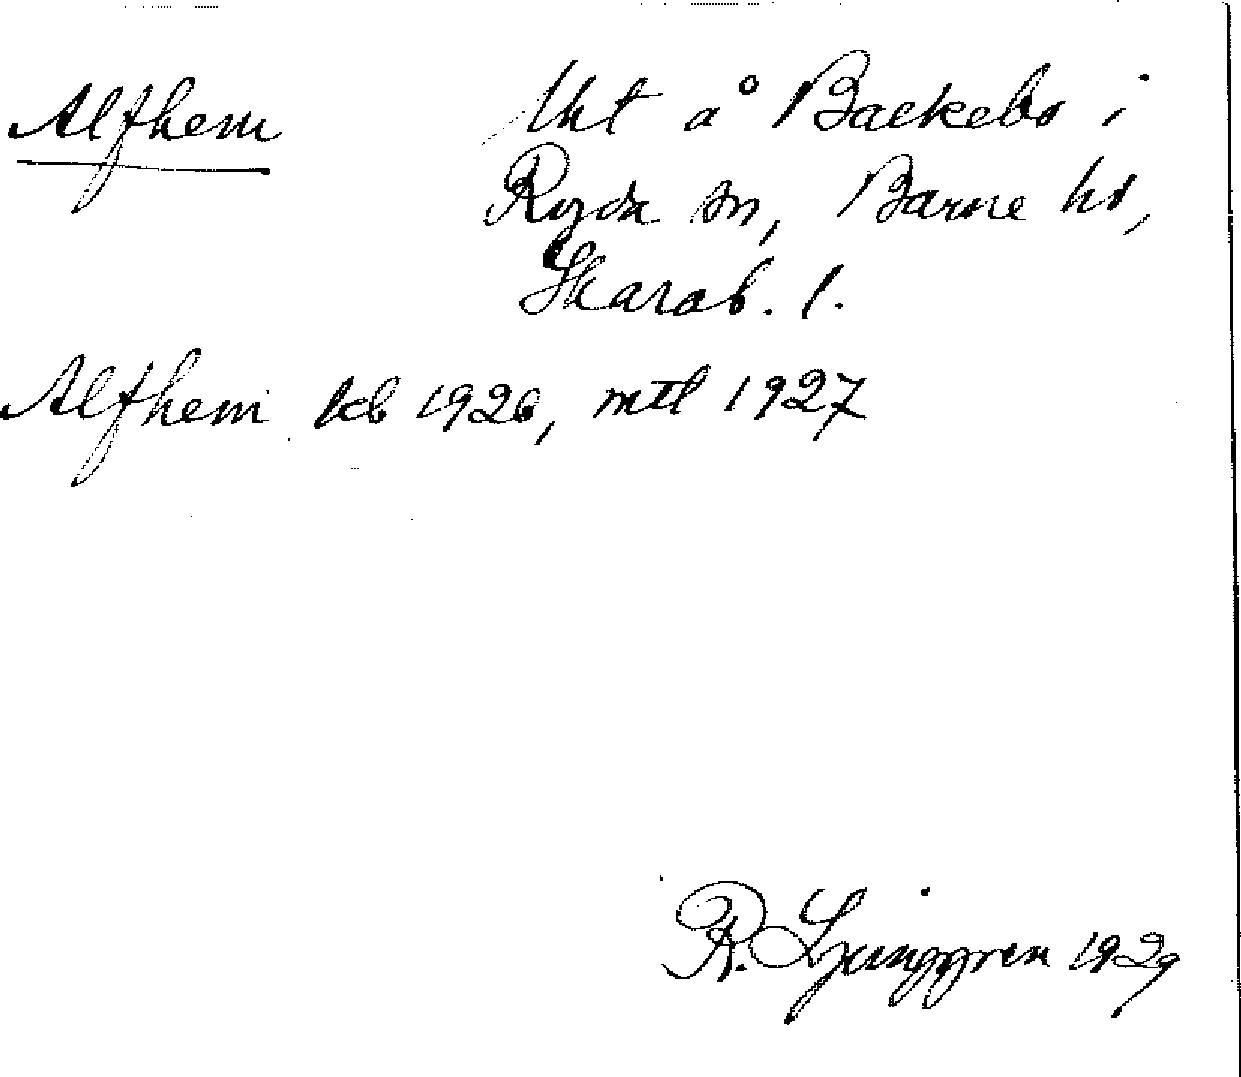 Alfhem Lht å Backebo i
Ryda sn, Barne hd,
Skarab. l.
Alfhem kb 1926, mtl 1927
R. Ljunggren 1929